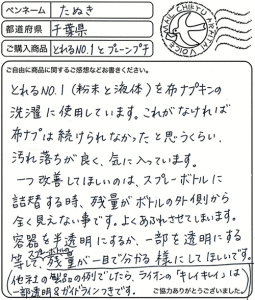 ペンネーム たぬき
都道府県 千葉県
ご購入商品 とれるNO.1とプレーンプチ
ご自由に商品に関するご感想などお書きください。
とれるNO.1(粉末と液体)を布ナプキンの
洗濯に使用しています。これがなければ
布ナプは続けられなかったと思うくらい、
汚れ落ちが良く、気に入っています。
一つ改善してほしいのは、スプレーボトルに
詰替する時、残量がボトルの外側から
全く見えない事です。よくあふれさせてしまいます。
容器を半透明にするか、一部を透明にする
等して、スプレーボトルの残量が一目で分かる様にしてほしいです。
(他社の製品の例でしたら、ライオンの「キレイキレイ」は
一部透明&ガイドラインつきです。
ご協力ありがとうございました。